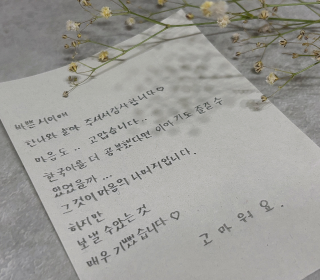 바쁜 시이에
만나와 놀아 주셔서 감사합니다♡
마음도.. 고맙습니다..
한국어을 더 공부했다면 이야기도 줄 수
있었을까...
그것이 마음의 나머지입니다.
하지만
보낼 수있는 것
매우 기뻤습니다♡
고 마 워 요.